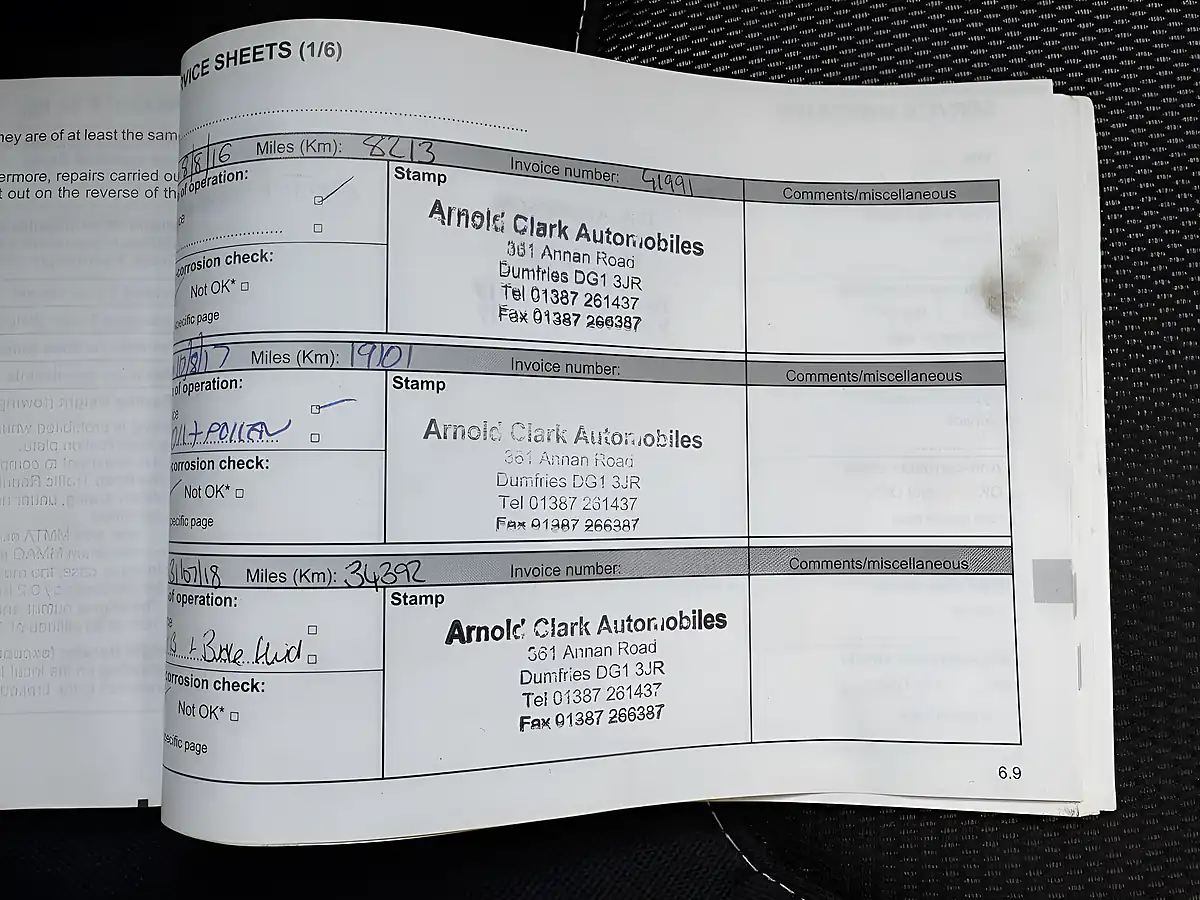 VICE SHEETS (1/6)
hey are of at least the sam
ermore, repairs carried ou
t out on the reverse of th
8/8/16 Miles (Km): 8213 Invoice number: 41991 Comments/miscellaneous
of operation:
Stamp
Arnold Clark Automobiles
361 Annan Road
Dumfries DG1 3JR
Tel 01387 261437
Fax 01387 266387
corrosion check:
Not OK*
pecific page
17/8/17 Miles (Km): 19101 Invoice number: Comments/miscellaneous
of operation:
ce
OIL + POLLEN
Stamp
Arnold Clark Automobiles
361 Annan Road
Dumfries DG1 3JR
Tel 01387 261437
Fax 01387 266387
corrosion check:
Not OK*
pecific page
31/07/18 Miles (Km): 34392 Invoice number: Comments/miscellaneous
of operation:
ce
B + Brake fluid
Stamp
Arnold Clark Automobiles
361 Annan Road
Dumfries DG1 3JR
Tel 01387 261437
Fax 01387 266387
corrosion check:
Not OK*
pecific page
6.9